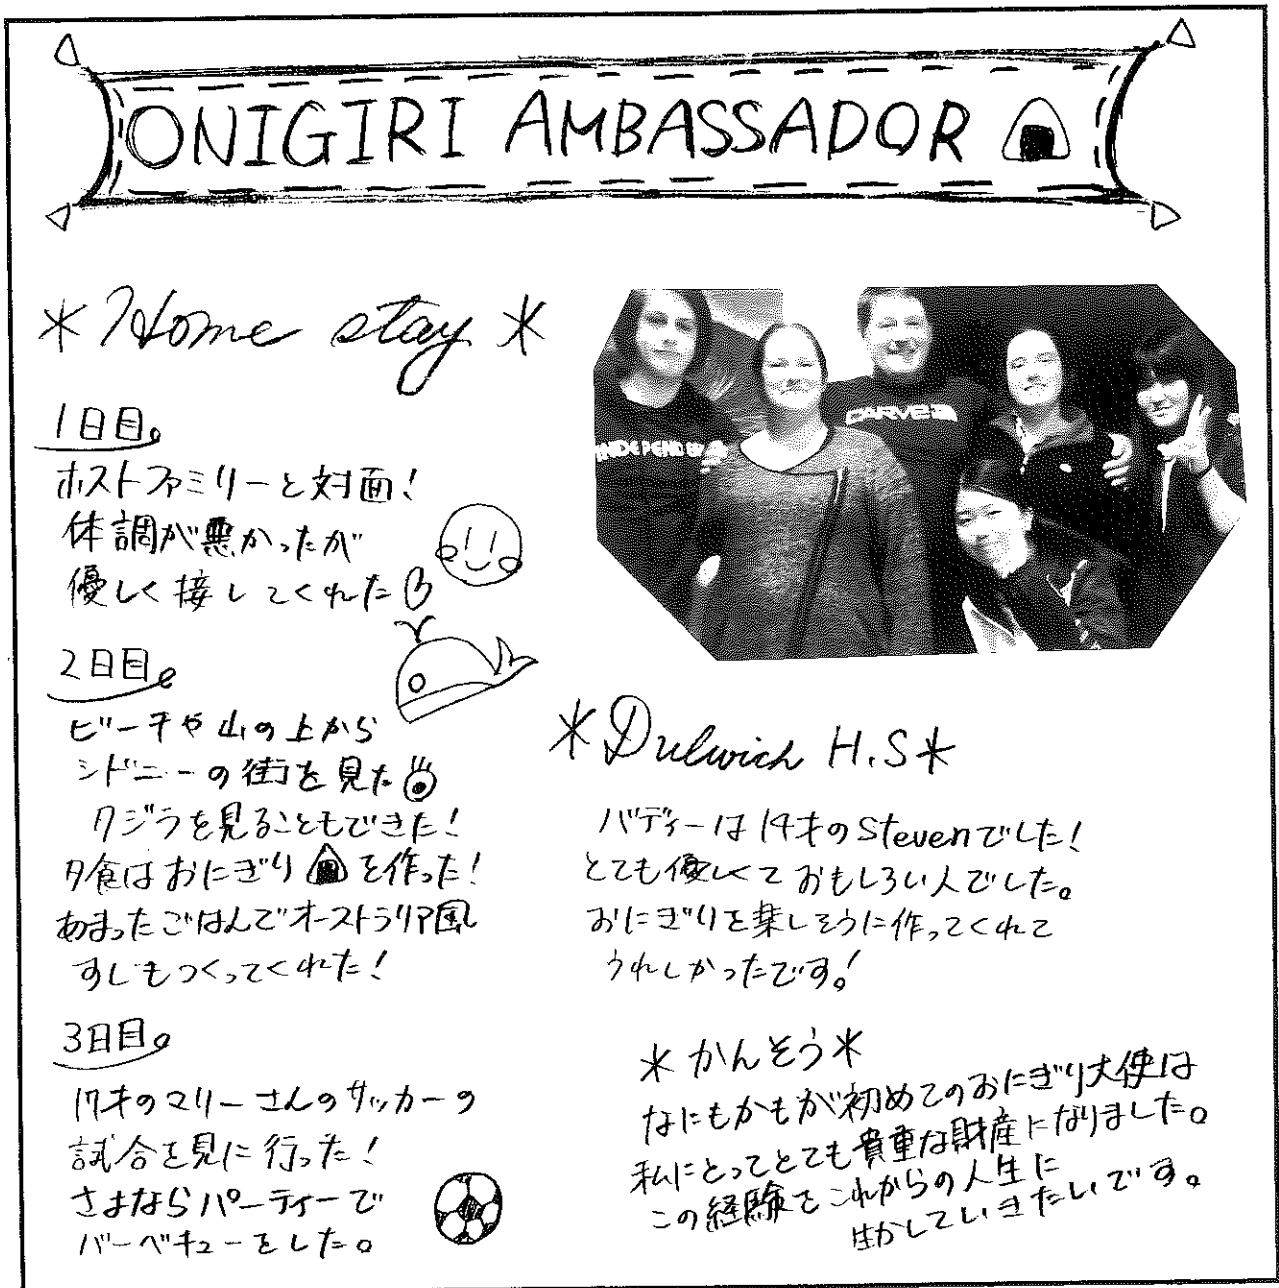 ONIGIRI AMBASSADOR
*Home stay*
1日目。
ホストファミリーと対面!
体調が悪かったが
優しく接してくれた
2日目。
ビーチや山の上から
シドニーの街を見た
クジラを見ることもできた!
夕食はおにぎりを作った!
あまったごはんでオーストラリア風
すしもつくってくれた!
3日目。
17才のマリーさんのサッカーの
試合を見に行った!
さよならパーティーで
バーベキューをした。
INDEPENDE
CARVE
*Dulwich H.S*
バディーは14才のStevenでした!
とても優しくておもしろい人でした。
おにぎりを楽しそうに作ってくれて
うれしかったです!
*かんそう*
なにもかもが初めてのおにぎり大使は
私にとってとても貴重な財産になりました。
この経験をこれからの人生に
生かしていきたいです。